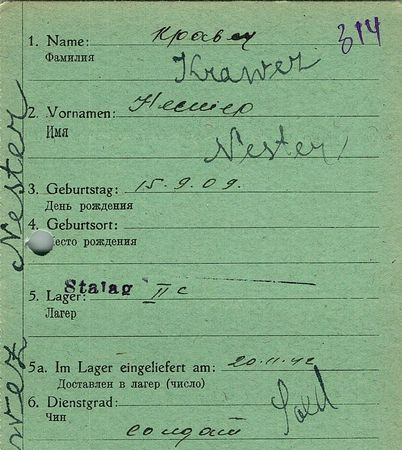 314
1. Name: Кравец
Фамилия
Krawez
2. Vornamen: Нестер
Имя
Nester
3. Geburtstag: 15.9.09.
День рождения
4. Geburtsort:
есто рождения
Stalag II c
5. Lager:
Лагер
5a. Im Lager eingeliefert am: 20.11.42
Доставлен в лагер (число)
6. Dienstgrad:
Чин
солдат
Sold
Nester